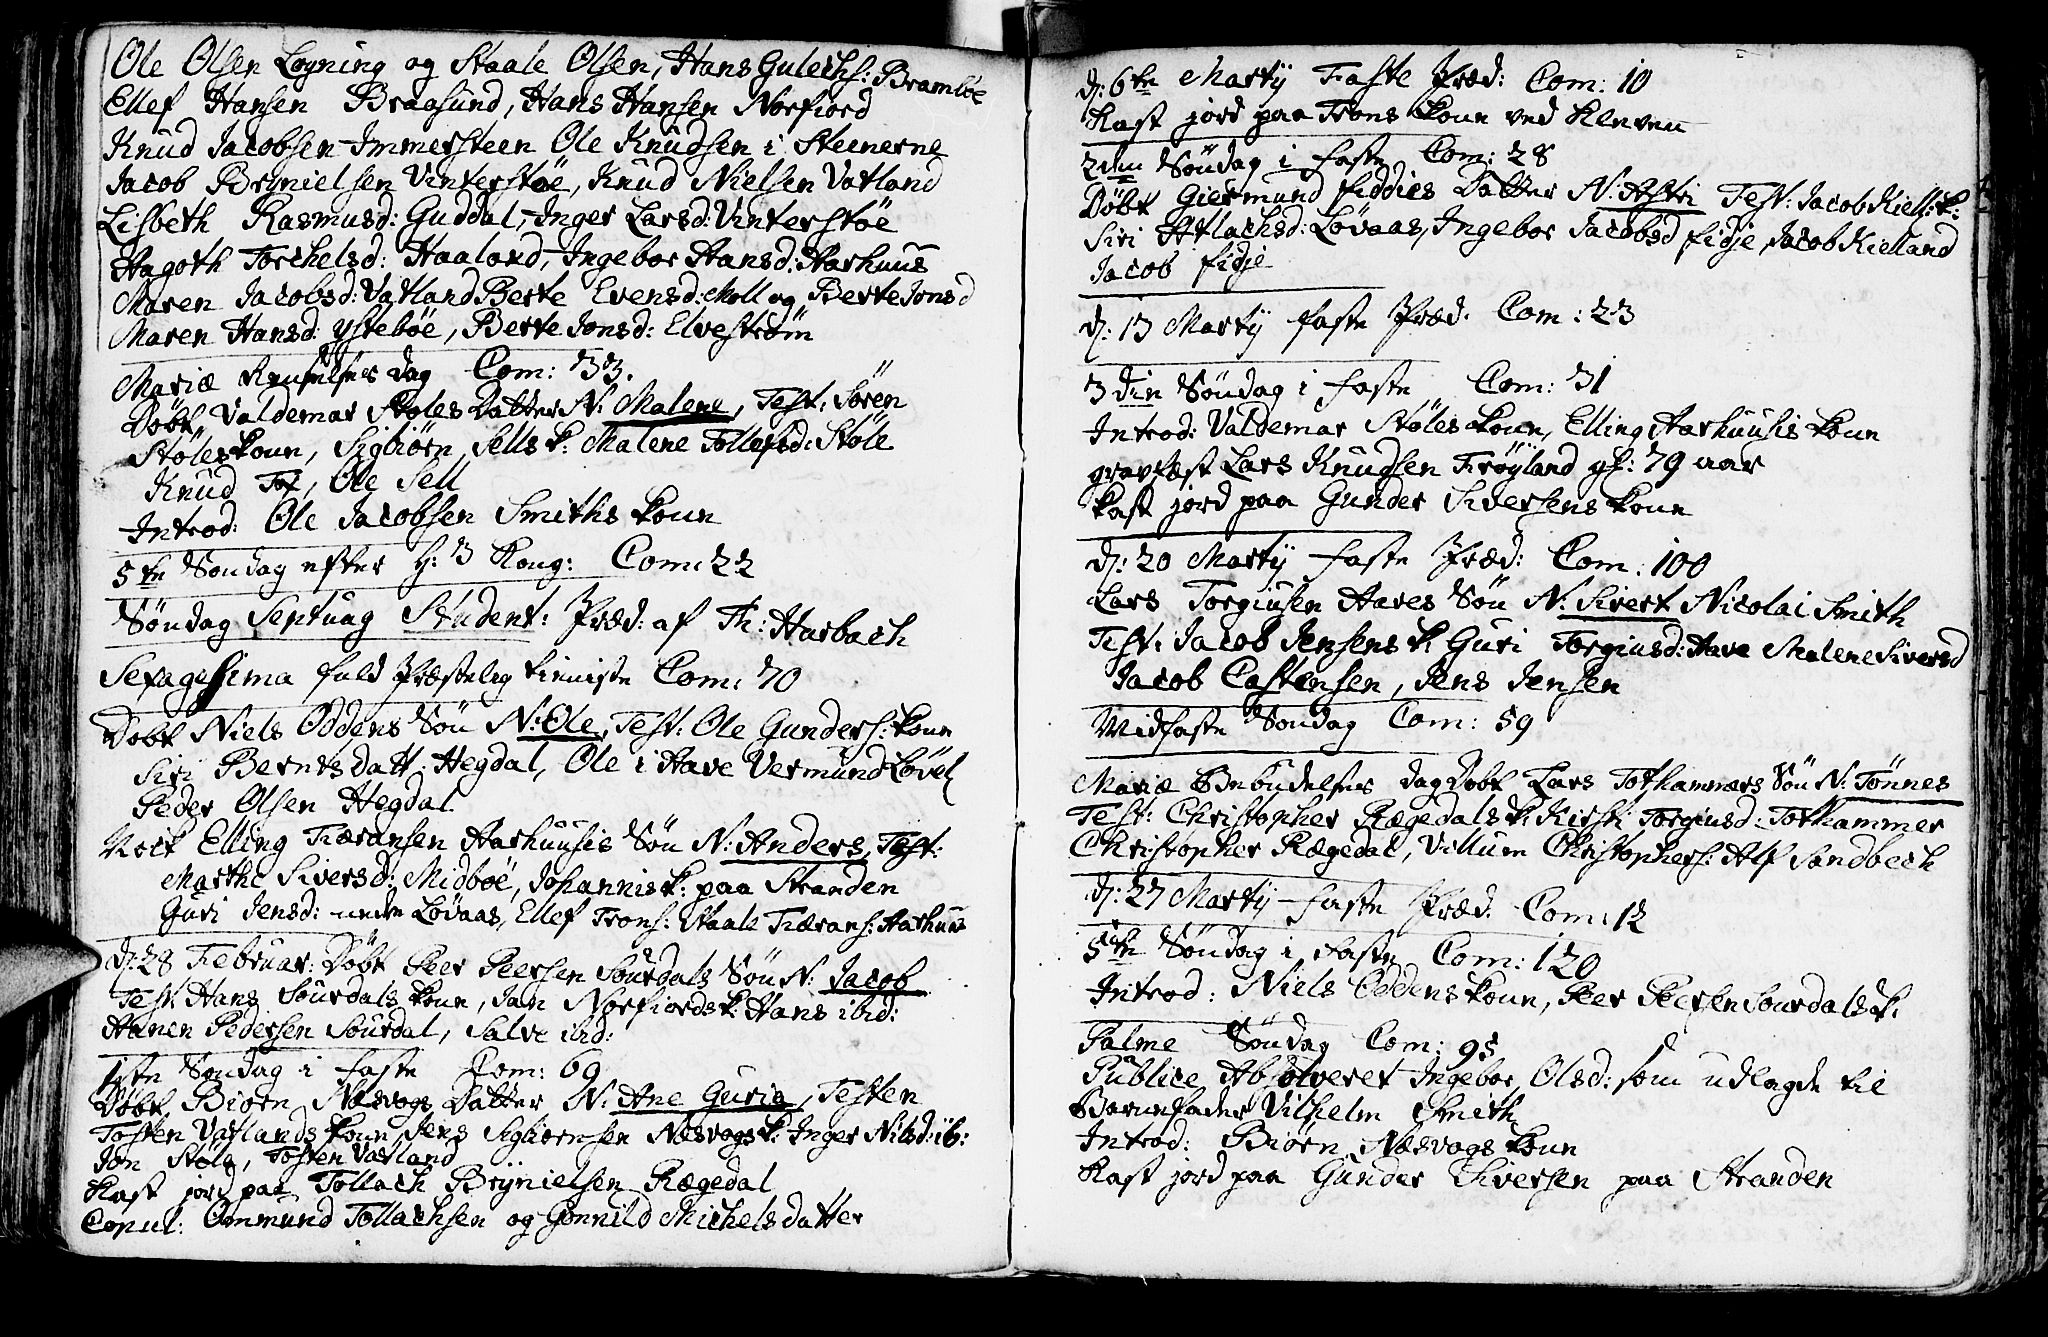 Ole Olsen Løyning og Staale Olsen, Hans Gulechs: Brambøe
Ellef Hansen Braasund, Hans Hansen Norfiord
Knud Jacobsen Immersteen Ole Knudsen i Steenerne
Jacob Brynielsen Vinterstøe, Knud Nielsen Vatland
Lisbeth Rasmusd: Guddal, Inger Larsd: Vinterstøe
Aagoth Torchelsd: Haaland, Ingebor Hansd: Aarhuus
Maren Jacobsd: Vatland Berte Evensd: Moll og Berte Jonsd
Maren Hansd: ÿstebøe, Berte Jonsd: Elvestrøm
Mariæ Renselses dag Com: 33.
Døbt Valdemar Støles Datter N: Malene, Test: Søren
Støles kone, Sigbiørn Sells k: Malene Tollefsd: Støle
Knud Tof, Ole Sell
Introd: Ole Jacobsen Smiths kone
5te Søndag efter H: 3 Kong: Com: 22
Søndag Septuag Student: Præd: af Th: Harbach
Sexagesima fuld Præstelig tieniste Com: 70
Døbt Niels Oddens Søn N: Ole, Test: Ole Gunders: kone
Siri Berntsdatt: Hegdal, Ole i Have Vermund Løvel
Peder Olsen Hegdal
Nock Elling Fiæransen Aarhuusis Søn N: Anders, Test:
Marthe Siversd: Midbøe, Johannis k: paa Stranden
Guri Jensd: neder Løvaas, Ellef Trons: Staale Fiærans: Aarhuus
d: 28 Februar: Døbt Peer Peersen Sourdals Søn N: Jacob
Test: Hans Sourdals kone, Jan Norfiords k: Hans ibid:
Hanen Pedersen Sourdal, Salve ibid:
1ste Søndag i faste Com: 69
Døbt Biørn Næsvogs Datter N: Ane Guria, Testen
Tosten Vatlands kone, Jens Sigbiørnsen Næsvogs k: Inger Nilsd: ib:
Jon Støle, Tosten Vatland
Kast jord paa Tollach Brÿnielsen Rægedal
Copul: Ommund Tollachsen og Gonnild Michels datter
d: 6te Martÿ Faste Præd: Com: 10
Kast jord paa Trons kone ved Kleven
2den Søndag i faste Com: 28
Døbt Giermund fiddies Datter N: Astri Test: Jacob Kiell: k:
Siri Atlachsd: Løvaas, Ingebor Jacobsd fidje, Jacob Kielland
Jacob fidje
d: 13 Martÿ faste Præd. Com: 23
3die Søndag i faste Com: 31
Introd: Valdemar Støles kone, Elling Aarhuusis kone
gravfæst Lars Knudsen Frøÿland gl: 79 aar
kast jord paa Gunder Siversens kone
d: 20 Martÿ faste Præd: Com: 100
Lars Torgiusen Haves Søn N: Sivert Nicolai Smith
Test: Jacob Jensens k: Guri Torgiusd: Have Malene Siversd
Jacob Castensen, Jens Jensen
Midfaste Søndag Com: 59
Mariæ Bebudelses dag Døbt Lars Tothammers Søn N: Tønnes
Test: Christopher Rægedals k: Kirsti Torgiusd: Tothammer
Christopher Rægedal, Villum Christophers: Alf Sandbech
d: 27 Martÿ faste Præd. Com: 12
5te Søndag i faste Com: 120
Introd: Niels Oddens kone, Peer Peersen Sourdals k:
Palme Søndag Com: 95
Publice Absolveret Ingebor Olsd: som udlagde til
Barnefader Vilhelm Smith
Introd: Biørn Næsvogs kone
Kast jord paa Gunder Siversen paa Stranden